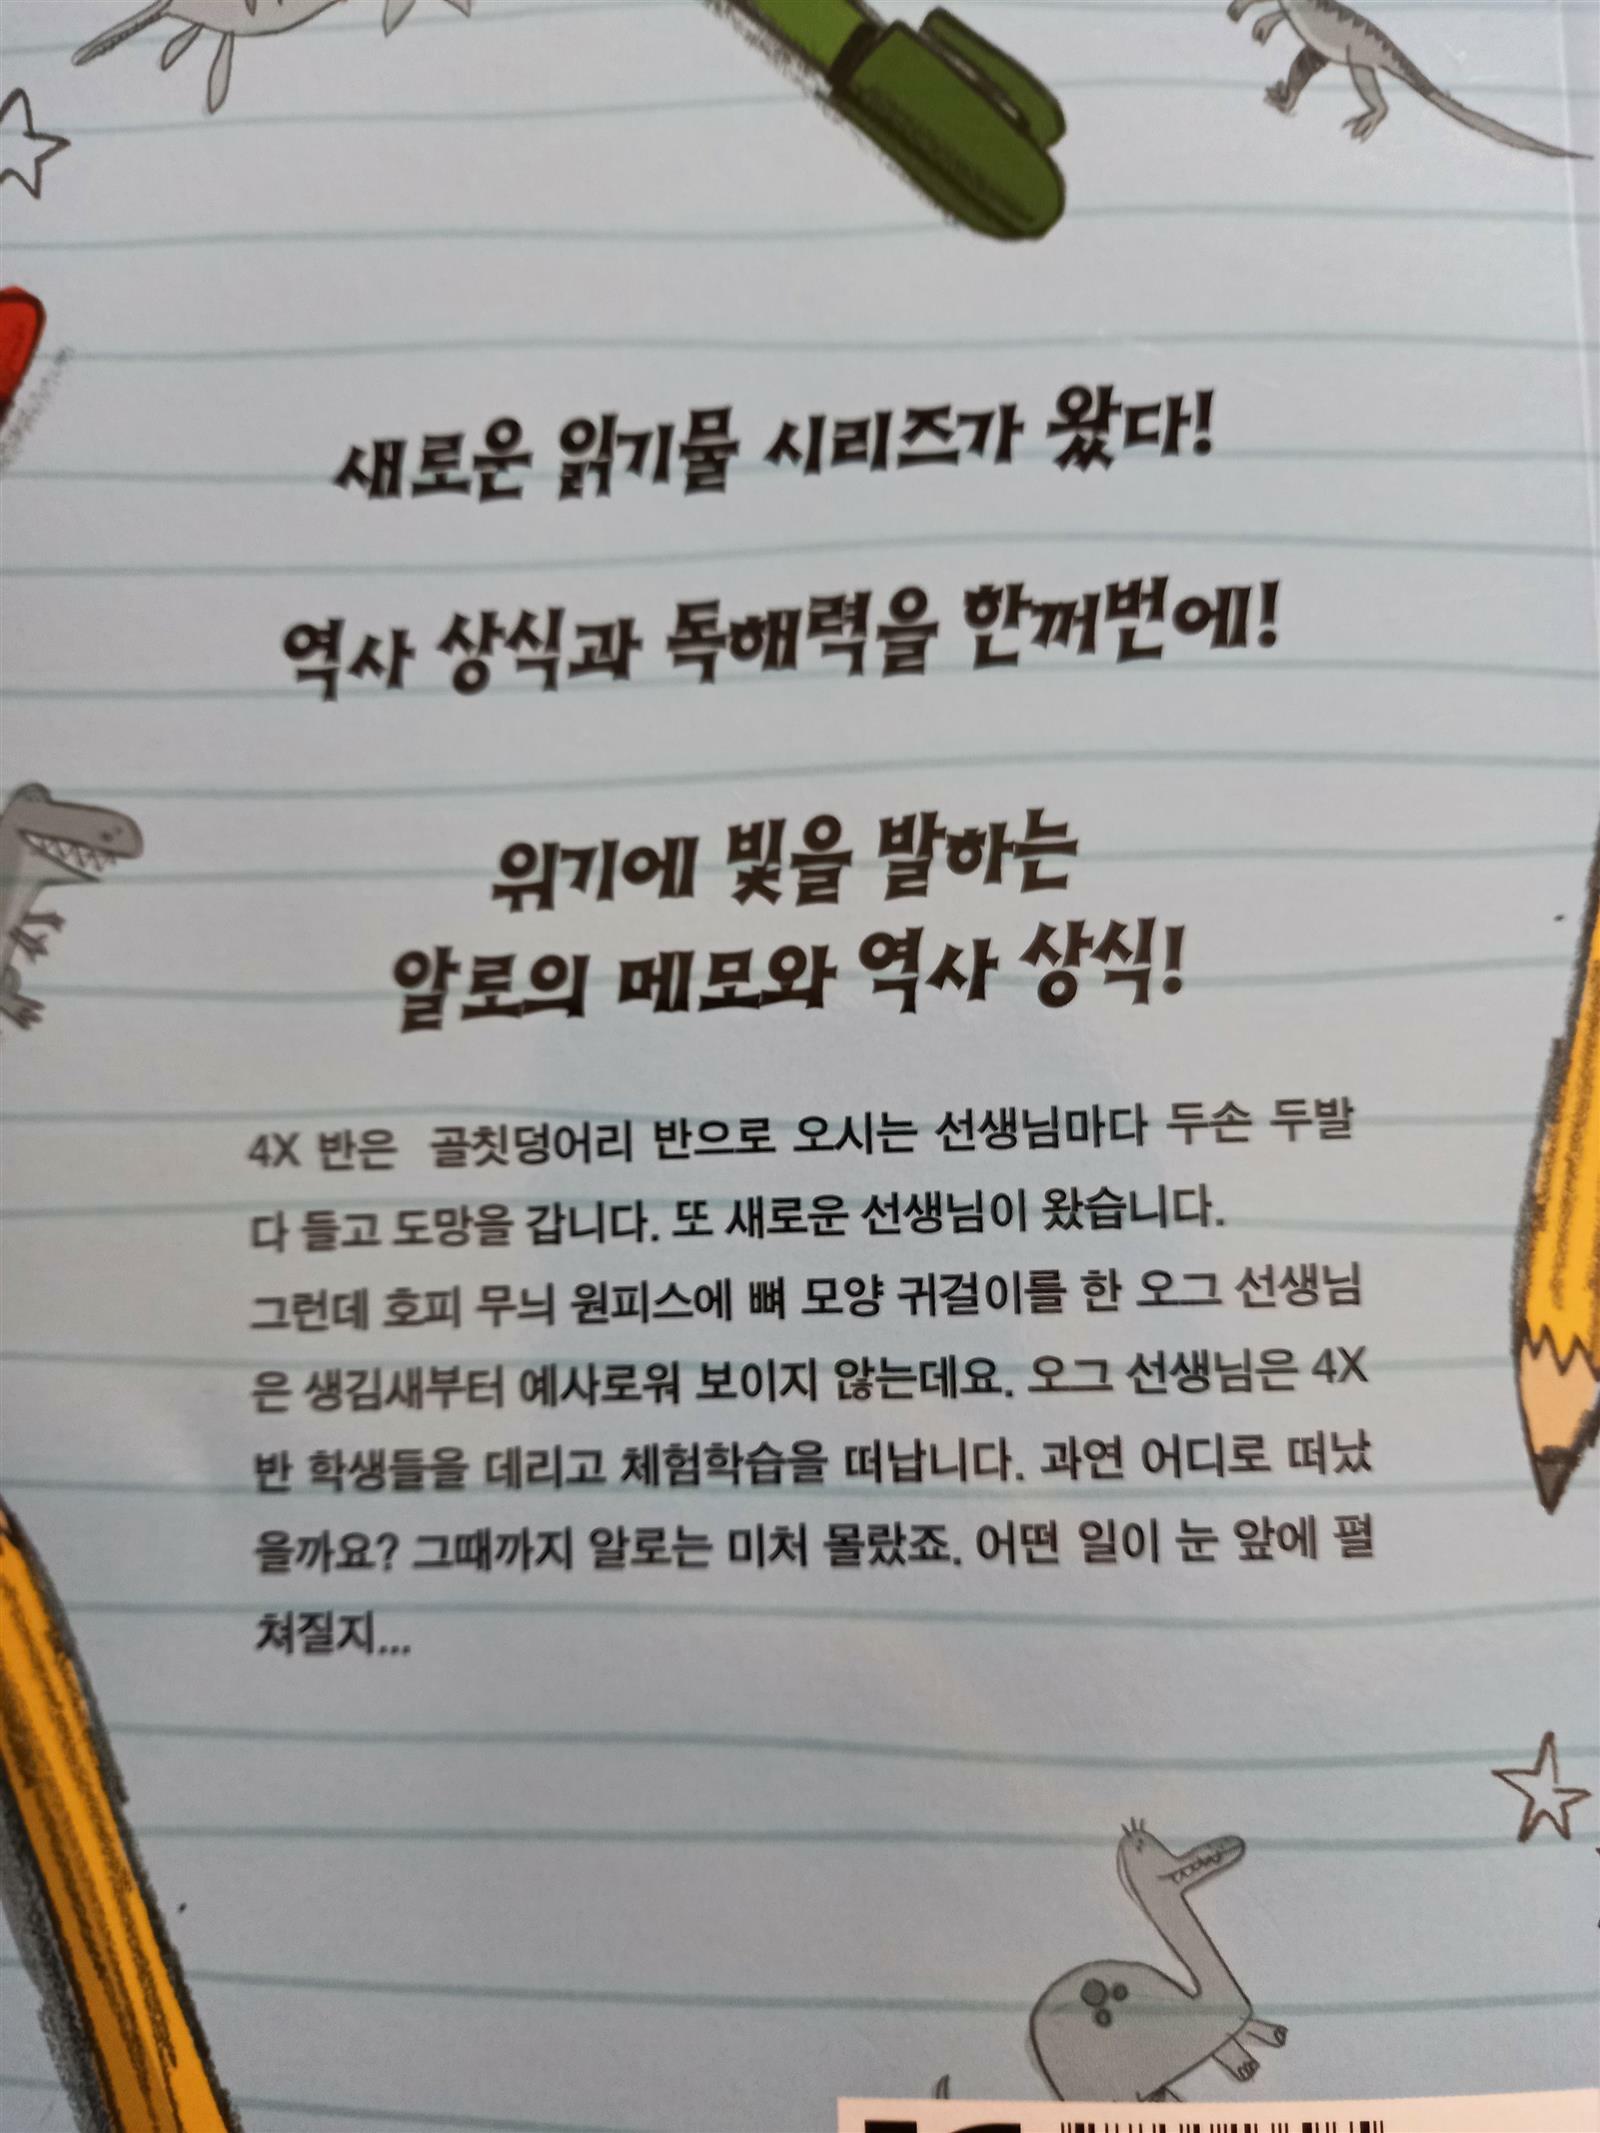 새로운 읽기물 시리즈가 왔다!
역사 상식과 독해력을 한꺼번에!
위기에 빛을 발하는
알로의 메모와 역사 상식!
4X 반은 골칫덩어리 반으로 오시는 선생님마다 두손 두발
다 들고 도망을 갑니다. 또 새로운 선생님이 왔습니다.
그런데 호피 무늬 원피스에 뼈 모양 귀걸이를 한 오그 선생님
은 생김새부터 예사로워 보이지 않는데요. 오그 선생님은 4X
반 학생들을 데리고 체험학습을 떠납니다. 과연 어디로 떠났
을까요? 그때까지 알로는 미처 몰랐죠. 어떤 일이 눈 앞에 펼
쳐질지...